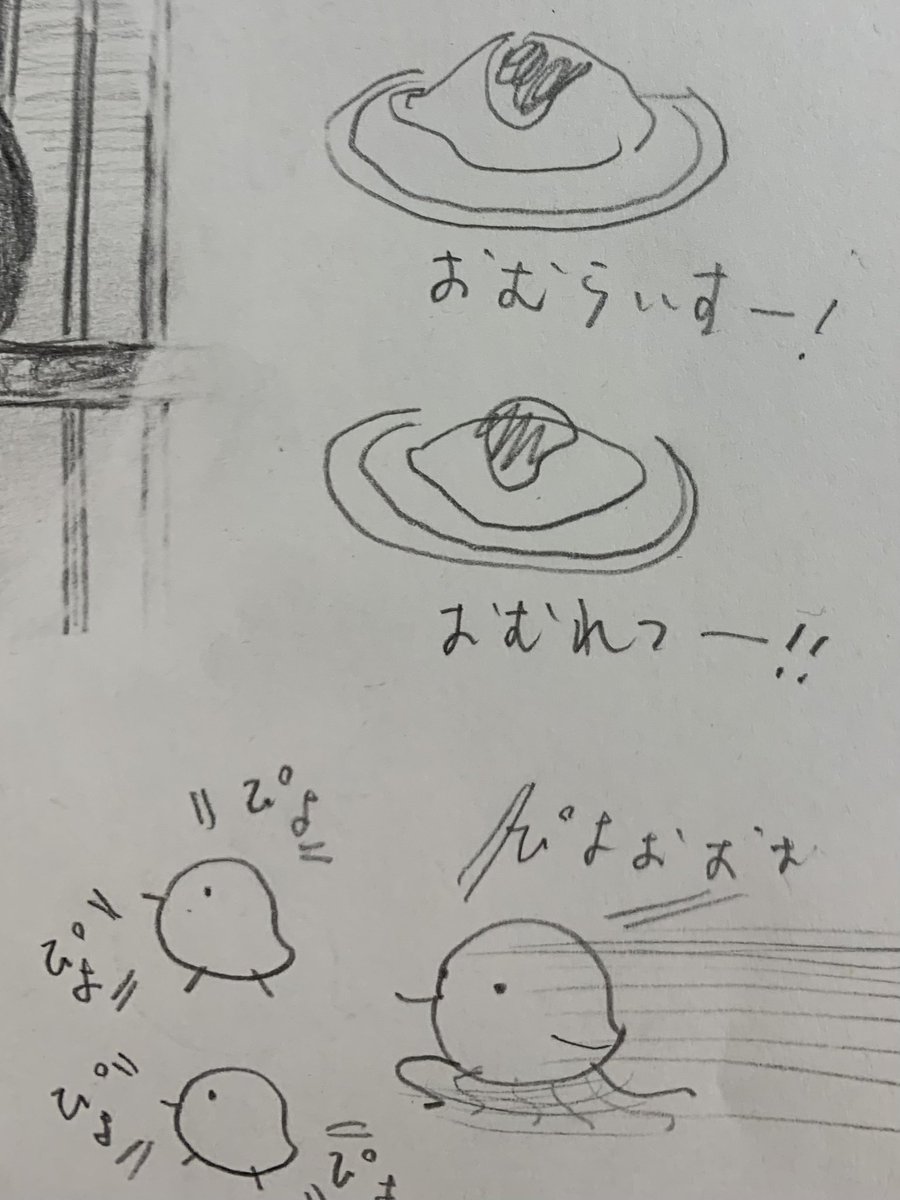 おむらいすー!
おむれつー!!
ぴよ
ぴよおおお
ぴよ
ぴよ
ぴよ